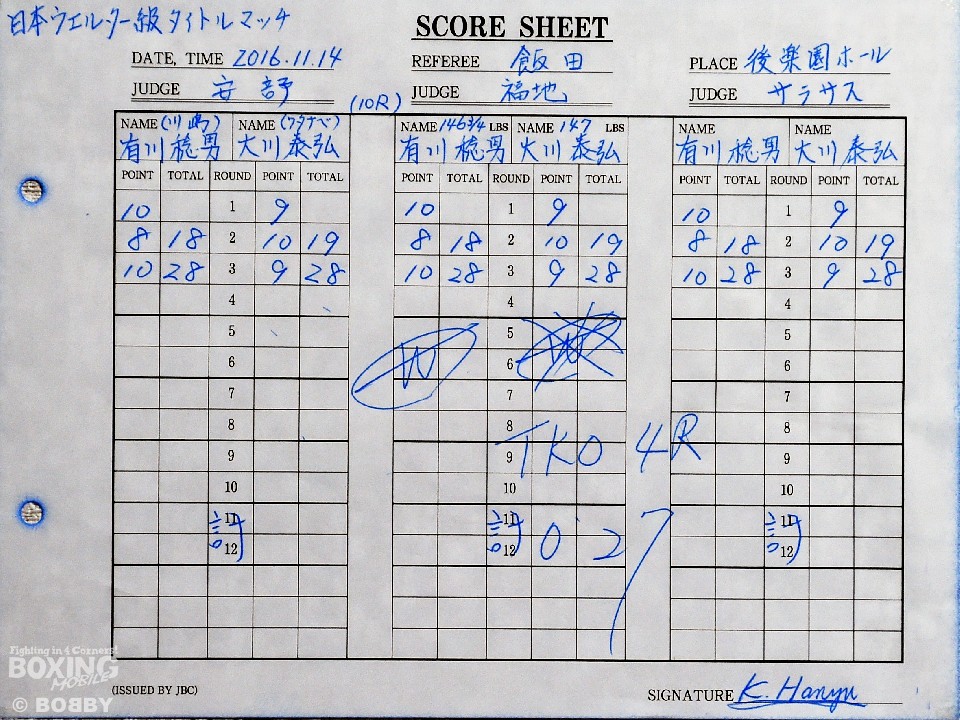 日本ウエルター級タイトルマッチ
SCORE SHEET
DATE, TIME 2016.11.14 REFEREE 飯田 PLACE 後楽園ホール
JUDGE 安部 (10R) JUDGE 福地 JUDGE サラサス
NAME (川島) NAME (ワタナベ) NAME 146 3/4 LBS NAME 147 LBS NAME NAME
有川 稔男 大川 泰弘 有川 稔男 大川 泰弘 有川 稔男 大川 泰弘
POINT TOTAL ROUND POINT TOTAL POINT TOTAL ROUND POINT TOTAL POINT TOTAL ROUND POINT TOTAL
10 1 9 10 1 9 10 1 9
8 18 2 10 19 8 18 2 10 19 8 18 2 10 19
10 28 3 9 28 10 28 3 9 28 10 28 3 9 28
4 4 4
5 5 5
W 6 6 W 6
7 7 7
8 8 8
9 9 TKO 4R 9
10 10 10
計 11 計 11 計 11
12 12 0'27 12
Fighting in 4 Corners!
BOXING
MOBILE
© BOBBY
(ISSUED BY JBC) SIGNATURE K. Hanyu